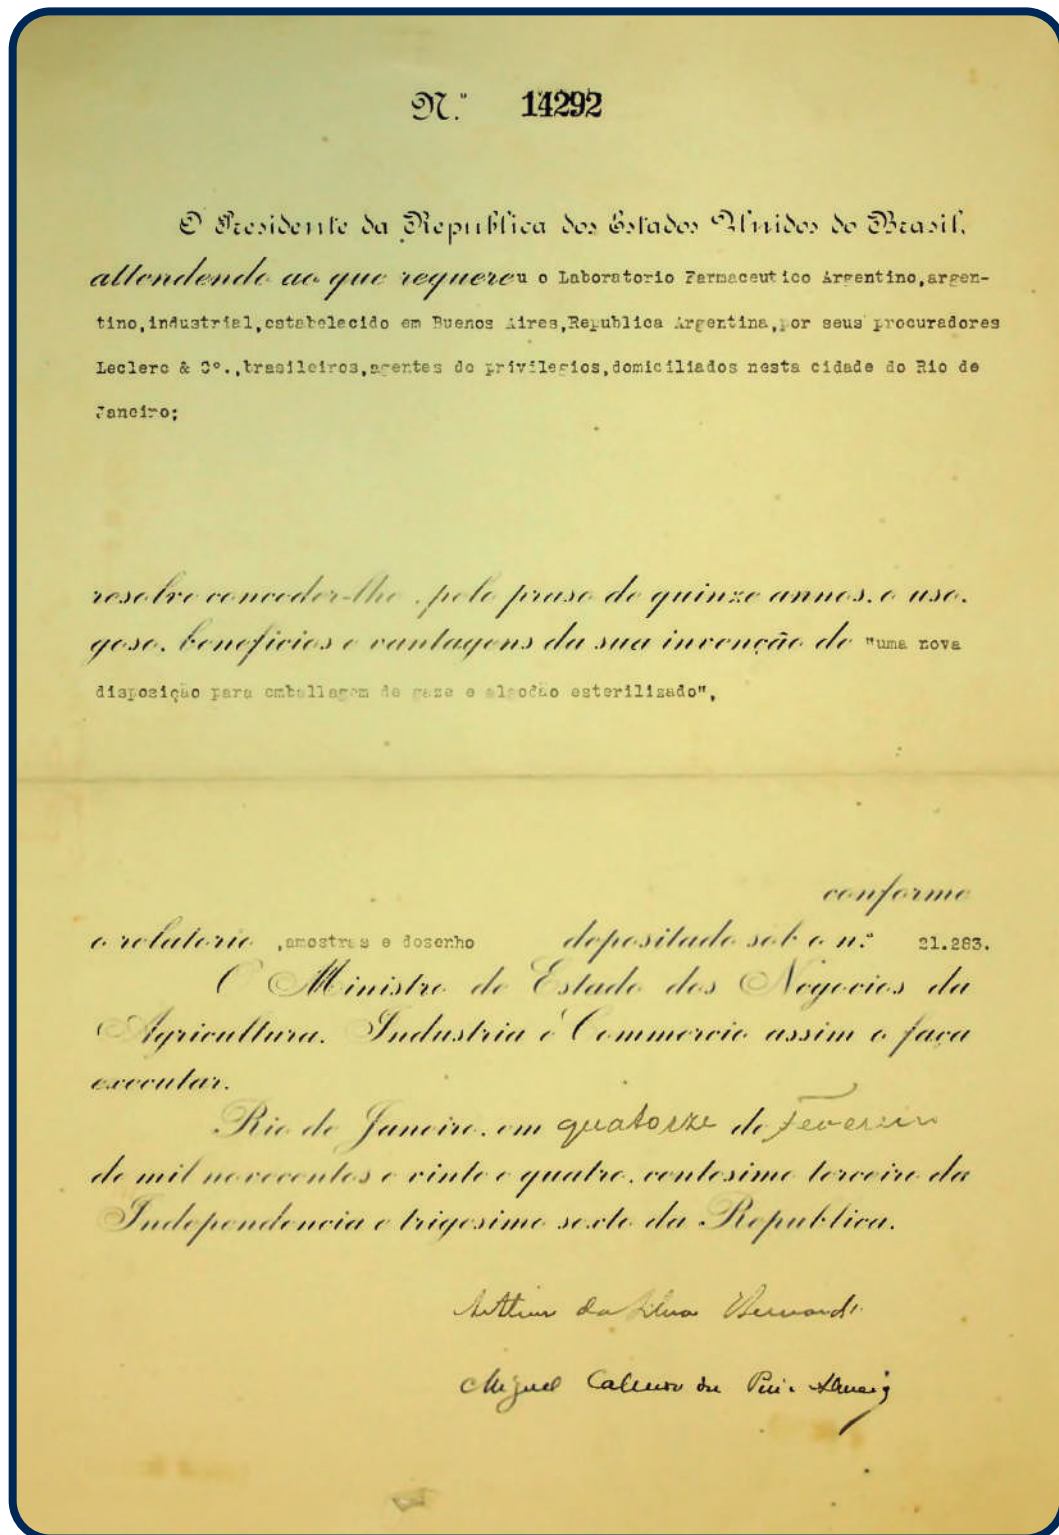 N.º 14292
O Presidente da Republica dos Estados Unidos do Brasil,
attendendo ao que requereu o Laboratorio Farmaceutico Argentino,argen-
tino,industrial,estabelecido em Buenos Aires,Republica Argentina,por seus procuradores
Leclerc & Cº.,brasileiros,agentes de privilegios,domiciliados nesta cidade do Rio de
Janeiro;
resolve conceder-lhe, pelo praso de quinze annos, o uso,
goso, beneficios e vantagens da sua invenção de "uma nova
disposição para emballagem de gaze e algodão esterilizado",
conforme
o relatorio ,amostras e desenho depositado sob o n.º 21.283.
O Ministro de Estado dos Negocios da
Agricultura, Industria e Commercio assim o faça
executar.
Rio de Janeiro, em quatorze de Fevereiro
de mil novecentos e vinte e quatro, centesimo terceiro da
Independencia e trigesimo sexto da Republica.
Arthur da Silva Bernardes
Miguel Calmon du Pin e Almeida